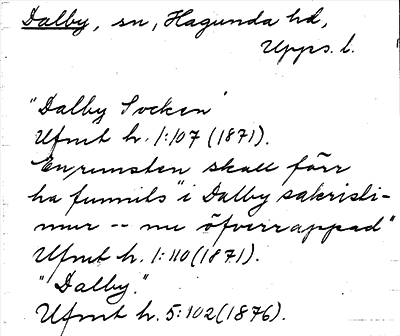 Dalby, sn, Hagunda hd,
Upps. l.
"Dalby Socken"
Ufmt h. 1:107 (1871).
En runsten skall förr
ha funnits "i Dalby sakristi-
mur -- nu öfverrappad"
Ufmt h. 1:110 (1871).
"Dalby."
Ufmt h. 5:102 (1876).